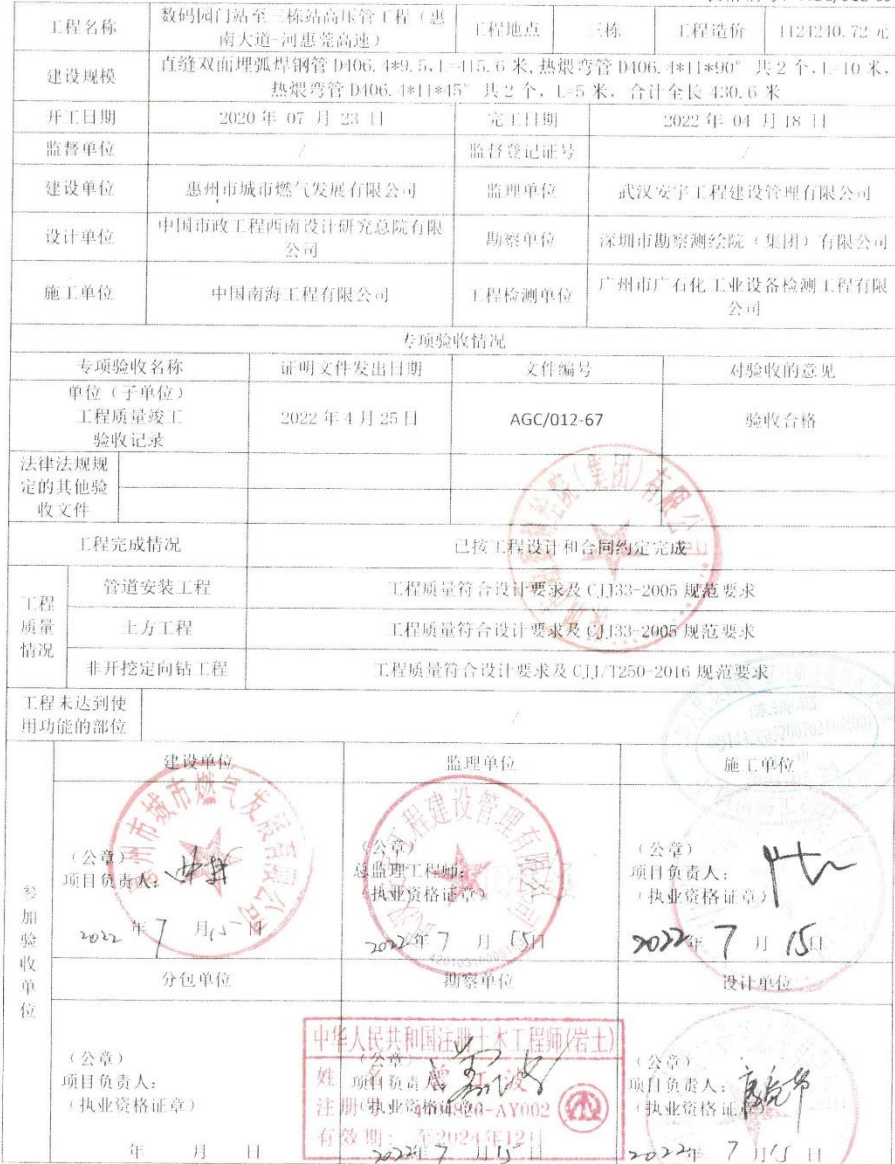 工程名称 数码园门站至三栋站高压管工程(惠
南大道-河惠莞高速) 工程地点 三栋 工程造价 1124240.72 元
建设规模 直缝双面埋弧焊钢管 D406.4*9.5,L=415.6 米,热煨弯管 D406.4*11*90° 共 2 个,L=10 米,
热煨弯管 D406.4*11*45° 共 2 个,L=5 米,合计全长 430.6 米
开工日期 2020 年 07 月 23 日 完工日期 2022 年 04 月 18 日
监督单位 / 监督登记证号 /
建设单位 惠州市城市燃气发展有限公司 监理单位 武汉安宇工程建设管理有限公司
设计单位 中国市政工程西南设计研究总院有限
公司 勘察单位 深圳市勘察测绘院(集团)有限公司
施工单位 中国南海工程有限公司 工程检测单位 广州市广石化工业设备检测工程有限
公司
专项验收情况
专项验收名称 证明文件发出日期 文件编号 对验收的意见
单位(子单位)
工程质量竣工
验收记录 2022 年 4 月 25 日 AGC/012-67 验收合格
法律法规规
定的其他验
收文件
工程完成情况 已按工程设计和合同约定完成
工程
质量
情况
管道安装工程 工程质量符合设计要求及 CJJ33-2005 规范要求
土方工程 工程质量符合设计要求及 CJJ33-2005 规范要求
非开挖定向钻工程 工程质量符合设计要求及 CJJ/T250-2016 规范要求
工程未达到使
用功能的部位 /
参加验收单位
建设单位 监理单位 施工单位
惠州市城市燃气发展有限公司
(公章)
项目负责人:
2022 年 7 月 15 日
工程建设管理有限公司
(公章)
总监理工程师:
(执业资格证章)
2022 年 7 月 15 日
(公章)
项目负责人:
(执业资格证章)
2022 年 7 月 15 日
分包单位 勘察单位 设计单位
(公章)
项目负责人:
(执业资格证章)
年 月 日
中华人民共和国注册土木工程师(岩土)
姓 名
注册号 -AY002
有效期: 至2024年12月
(公章)
项目负责人:
(执业资格证章)
2022 年 7 月 15 日
(公章)
项目负责人:
(执业资格证章)
2022 年 7 月 15 日